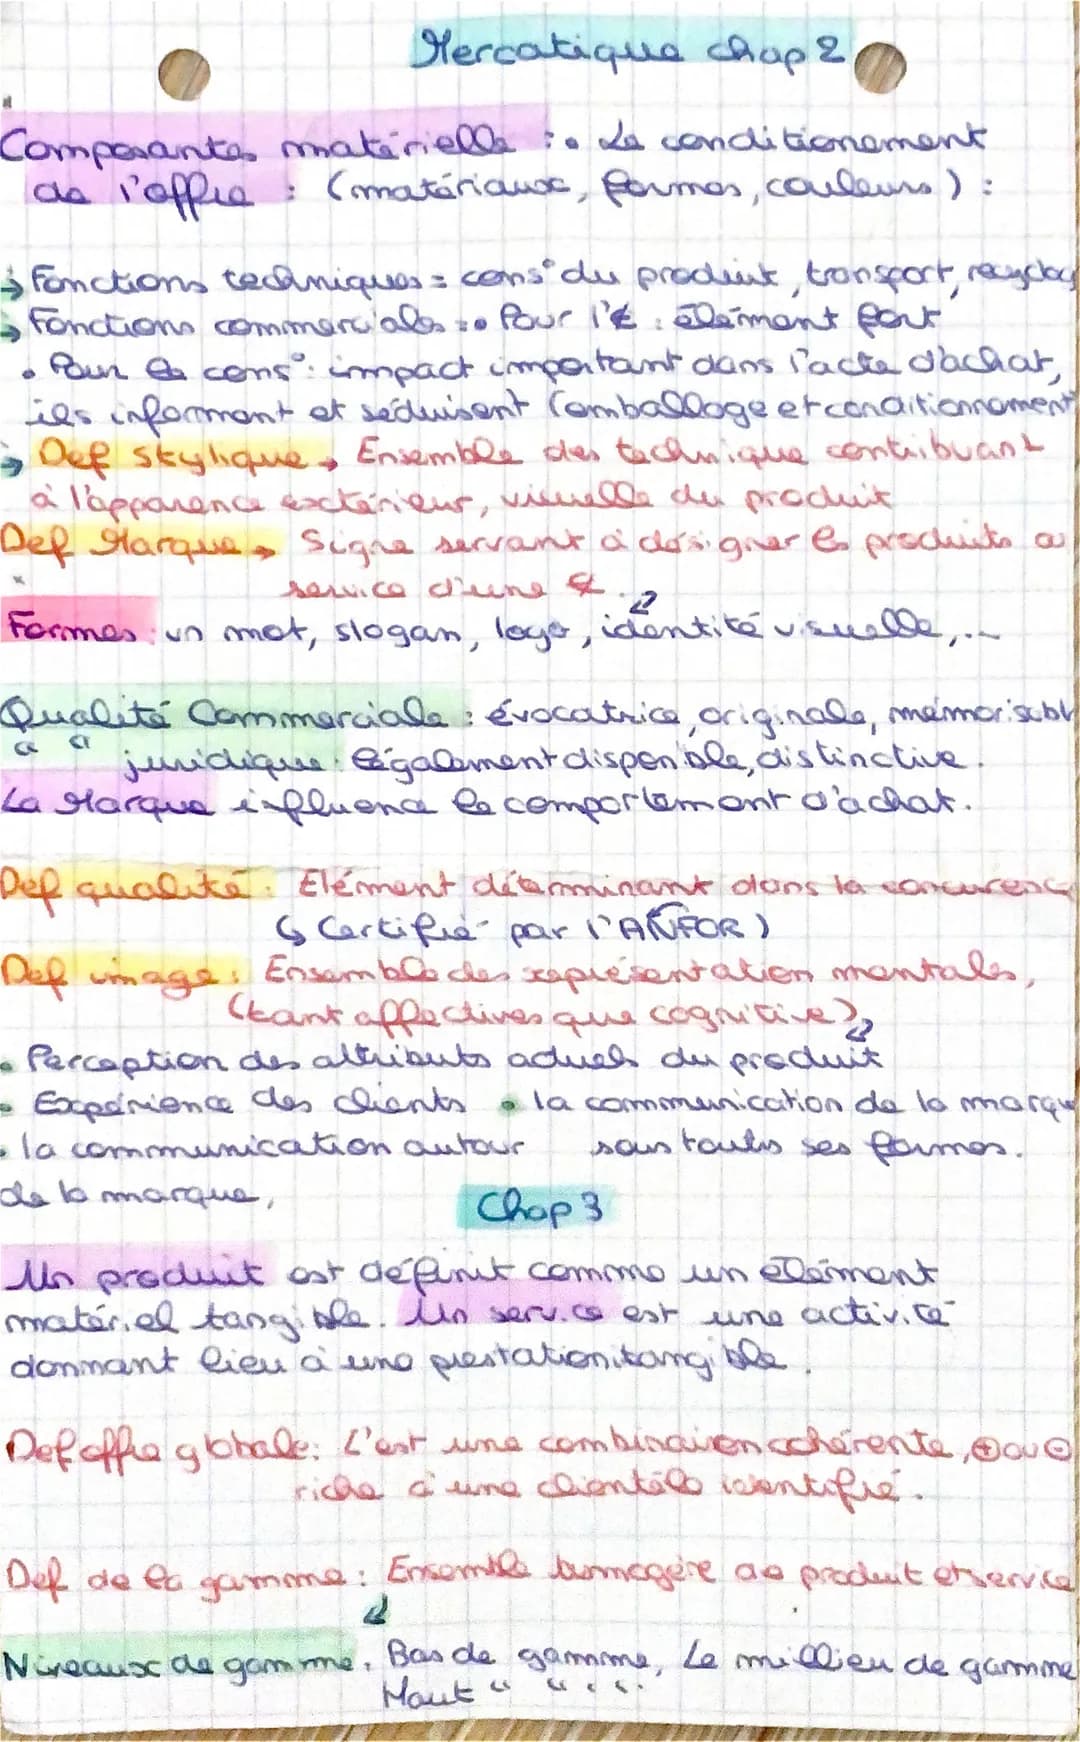 Mercatique chap 2
Composantes matérielle : • Le conditionement
de l'offre : (matériaux, formes, couleurs) :
→ Fonctions techniques = cons° du produit, transport, recyclag
→ Fonctions commerciales : • Pour l'€ : élément fort
• Pour le cons° : impact important dans l'acte d'achat,
ils informent et séduisent (emballage et conditionnement
→ Def stylique → Ensemble des technique contribuant
à l'apparence exctérieur, visuelle du produit
Def Marque → Signe servant à désigner les produits ou
service d'une €.
Formes : un mot, slogan, logo, identité visuelle,...
Qualité Commerciale : évocatrice, originale, mémorisabl
" " juridique : légalement disponible, distinctive.
La Marque influence le comportement d'achat.
Def qualité : Elément déterminant dans la concurenc
↳ Certifié par l'ANFOR)
Def image : Ensemble des représentation mentales,
(tant affectives que cognitive)
• Perception des attributs actuels du produit
• Expérience des clients • la communication de la marqu
• la communication autour sous toutes ses formes.
de la marque,
Chap 3
Un produit est définit comme un élément
matériel tangible. Un service est une activité
donnant lieu à une prestation itangible.
Def offre globale : C'est une combinaison cohérente, ⊕ ou ⊖
riche à une clientèle identifié.
Def de la gamme : Ensemble homogère de produit et service
Niveaux de gamme : Bas de gamme, Le millieu de gamme
Haut " " " ".